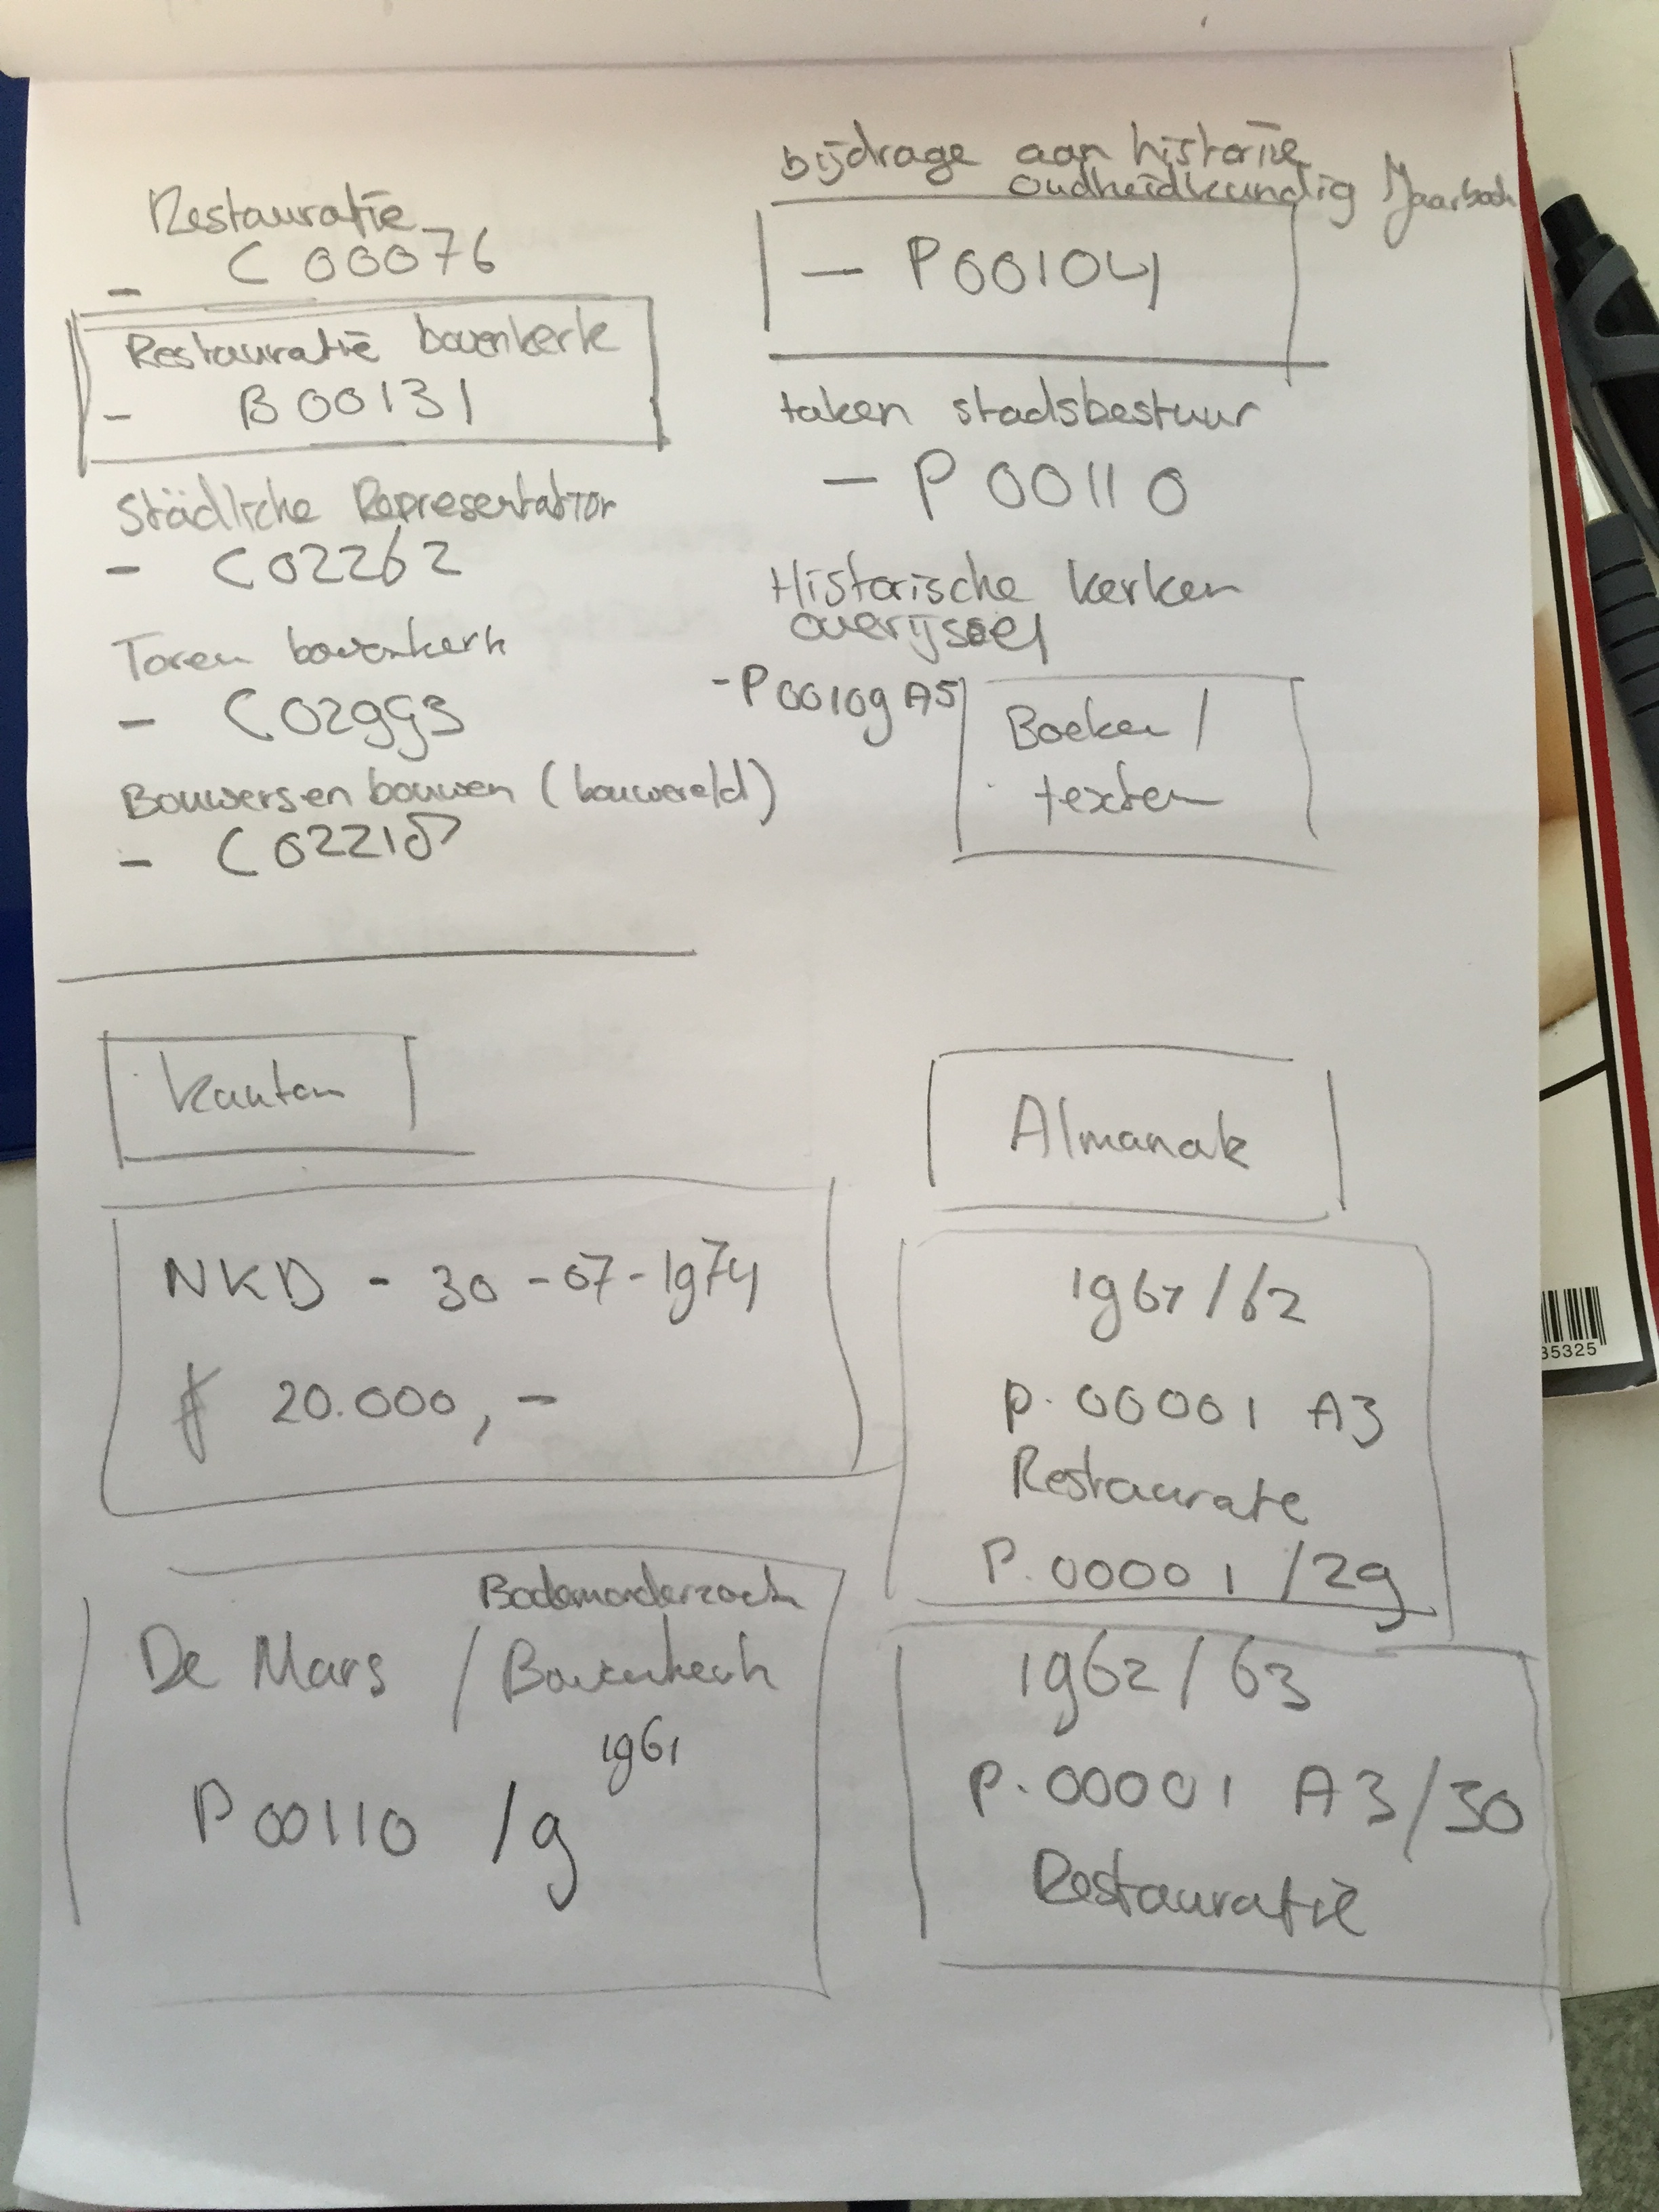 Restauratie
C 00076
-
Restauratie bovenkerk
- B 00131
Städliche Representation
- C 02262
Toren bovenkerk
- C 02993
Bouwers en bouwen (bouwereld)
- C 02218
bijdrage aan historie
oudheidkundig Jaarboek
- P 00104
taken stadsbestuur
- P 00110
Historische kerken
overijssel
- P 00109 A5
Boeken /
texten
kranten
NKD - 30-07-1974
ƒ 20.000,-
Bodemonderzoek
De Mars / Bovenkerk
1961
P 00110 /9
Almanak
1961/62
P. 00001 A3
Restaurate
P. 00001 /29
1962/63
P. 00001 A3/30
Restauratie
35325